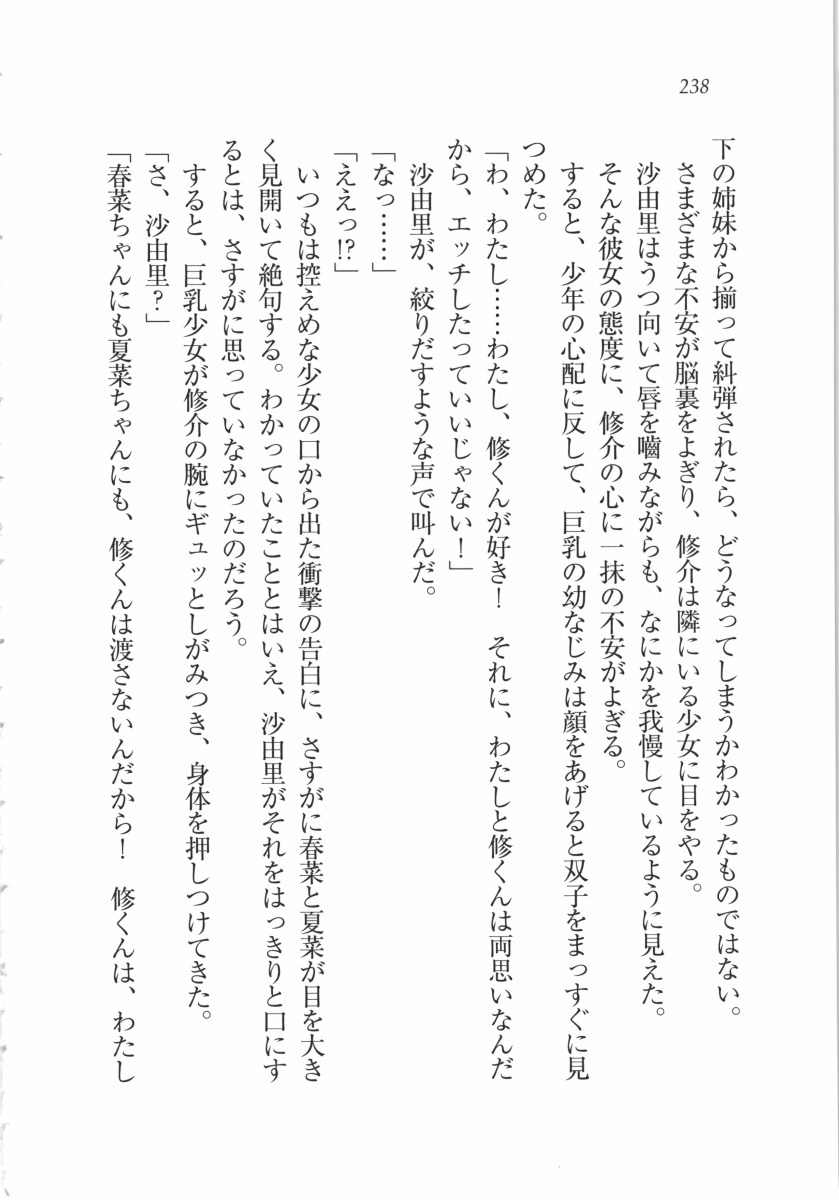 238
下の姉妹から揃って糾弾されたら、どうなってしまうかわかったものではない。
さまざまな不安が脳裏をよぎり、修介は隣にいる少女に目をやる。
沙由里はうつ向いて唇を嚙みながらも、なにかを我慢しているように見えた。
そんな彼女の態度に、修介の心に一抹の不安がよぎる。
すると、少年の心配に反して、巨乳の幼なじみは顔をあげると双子をまっすぐに見
つめた。
「わ、わたし……わたし、修くんが好き！　それに、わたしと修くんは両思いなんだ
から、エッチしたっていいじゃない！」
沙由里が、絞りだすような声で叫んだ。
「なっ……」
「ええっ!?」
いつもは控えめな少女の口から出た衝撃の告白に、さすがに春菜と夏菜が目を大き
く見開いて絶句する。わかっていたこととはいえ、沙由里がそれをはっきりと口にす
るとは、さすがに思っていなかったのだろう。
すると、巨乳少女が修介の腕にギュッとしがみつき、身体を押しつけてきた。
「さ、沙由里？」
「春菜ちゃんにも夏菜ちゃんにも、修くんは渡さないんだから！　修くんは、わたし